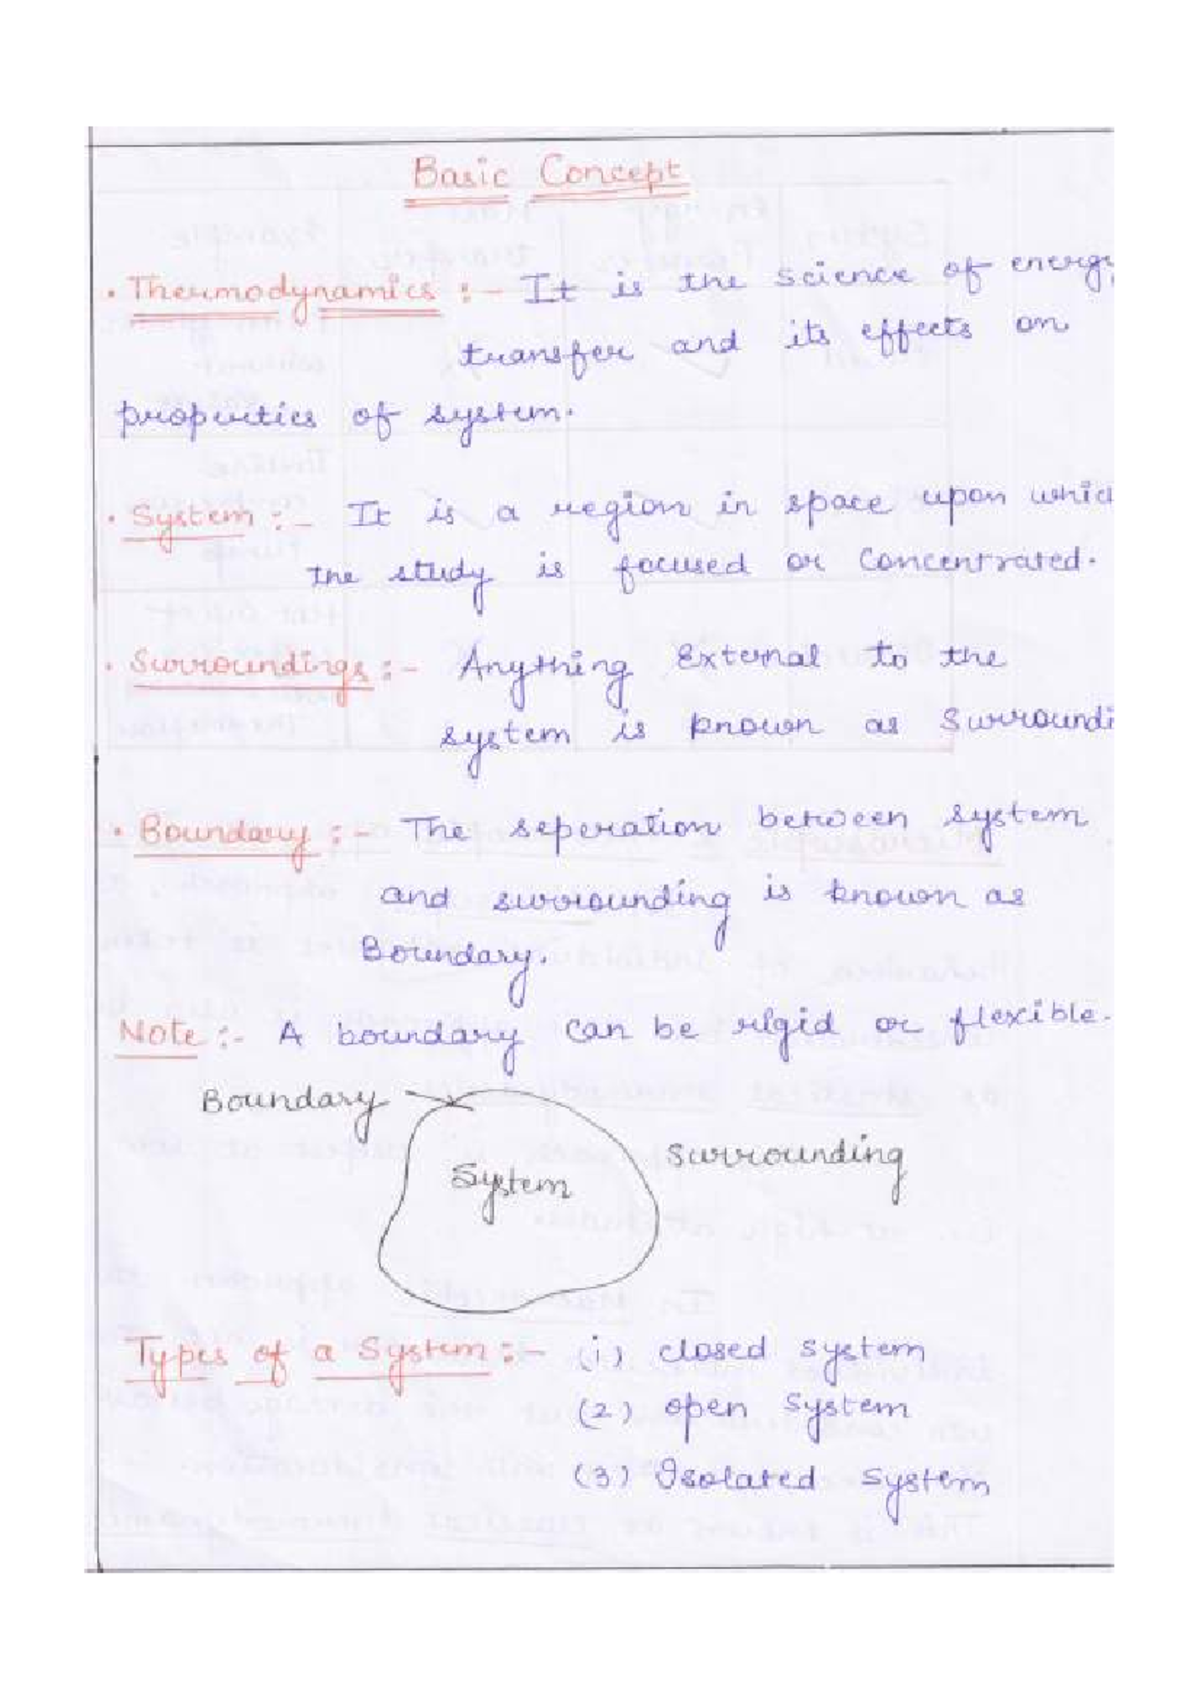 Basic Concept
. Thermodynamics :- It is the science of energy
transfer and its effects on
properties of system.
. System :- It is a region in space upon whic
the study is focused or concentrated.
. Surroundings :- Anything External to the
system is known as Surroundi
. Boundary :- The seperation between system
and surrounding is known as
Boundary.
Note :- A boundary can be rigid or flexible.
Boundary
Surrounding
System
Types of a System :- (i) closed system
(2) open System
(3) Isolated System